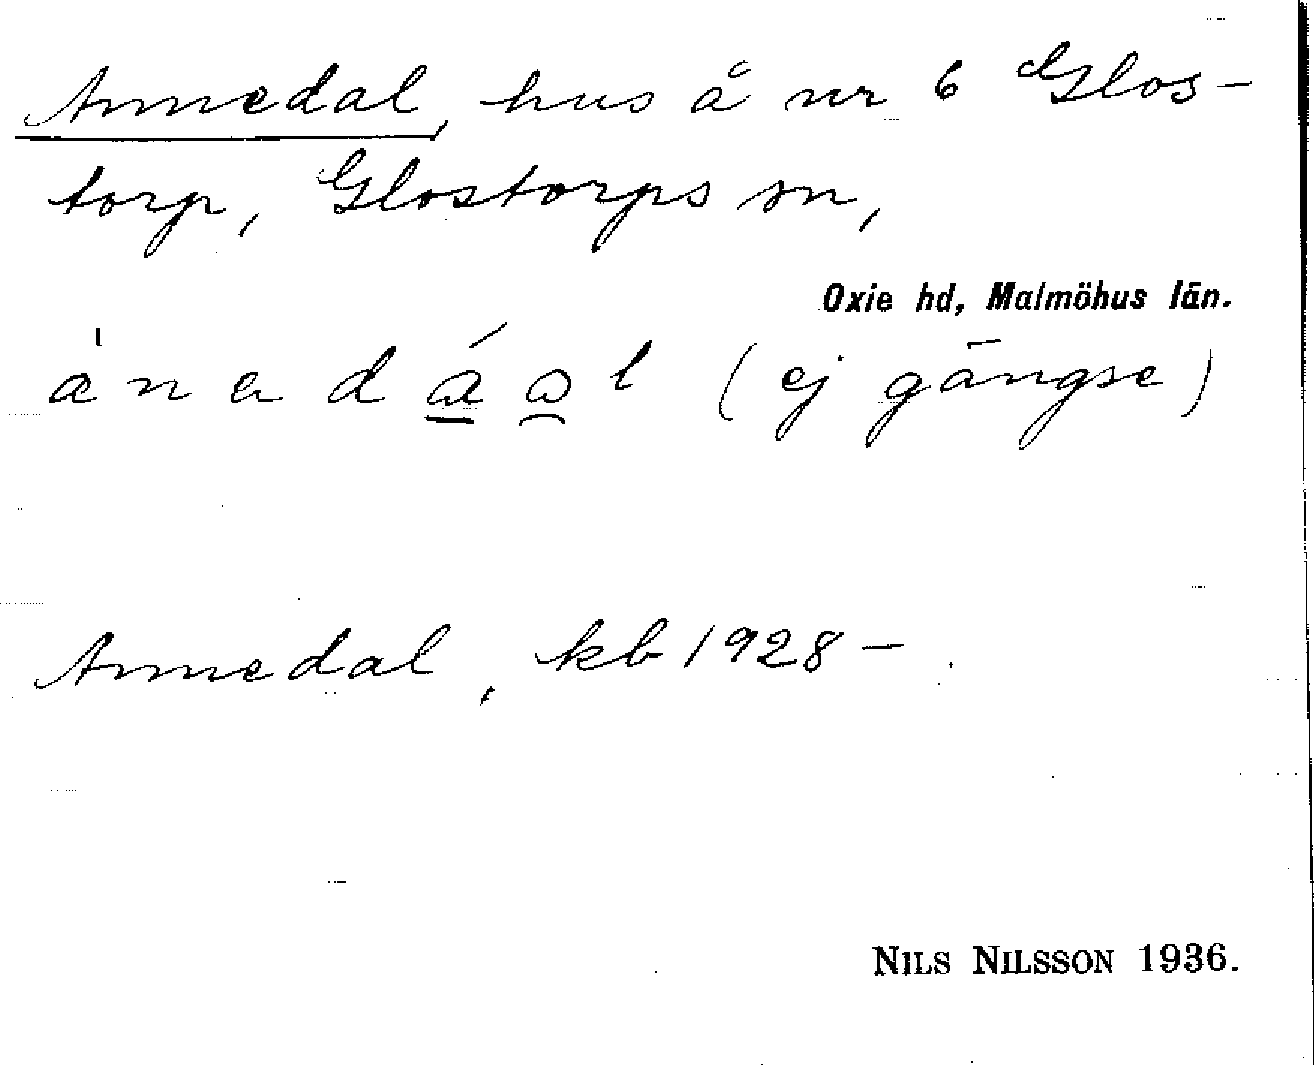 Annedal, hus å nr 6 Glos-
torp, Glostorps sn,
Oxie hd, Malmöhus län.
(ej gängse)
Annedal, kb 1928 -
NILS NILSSON 1936.